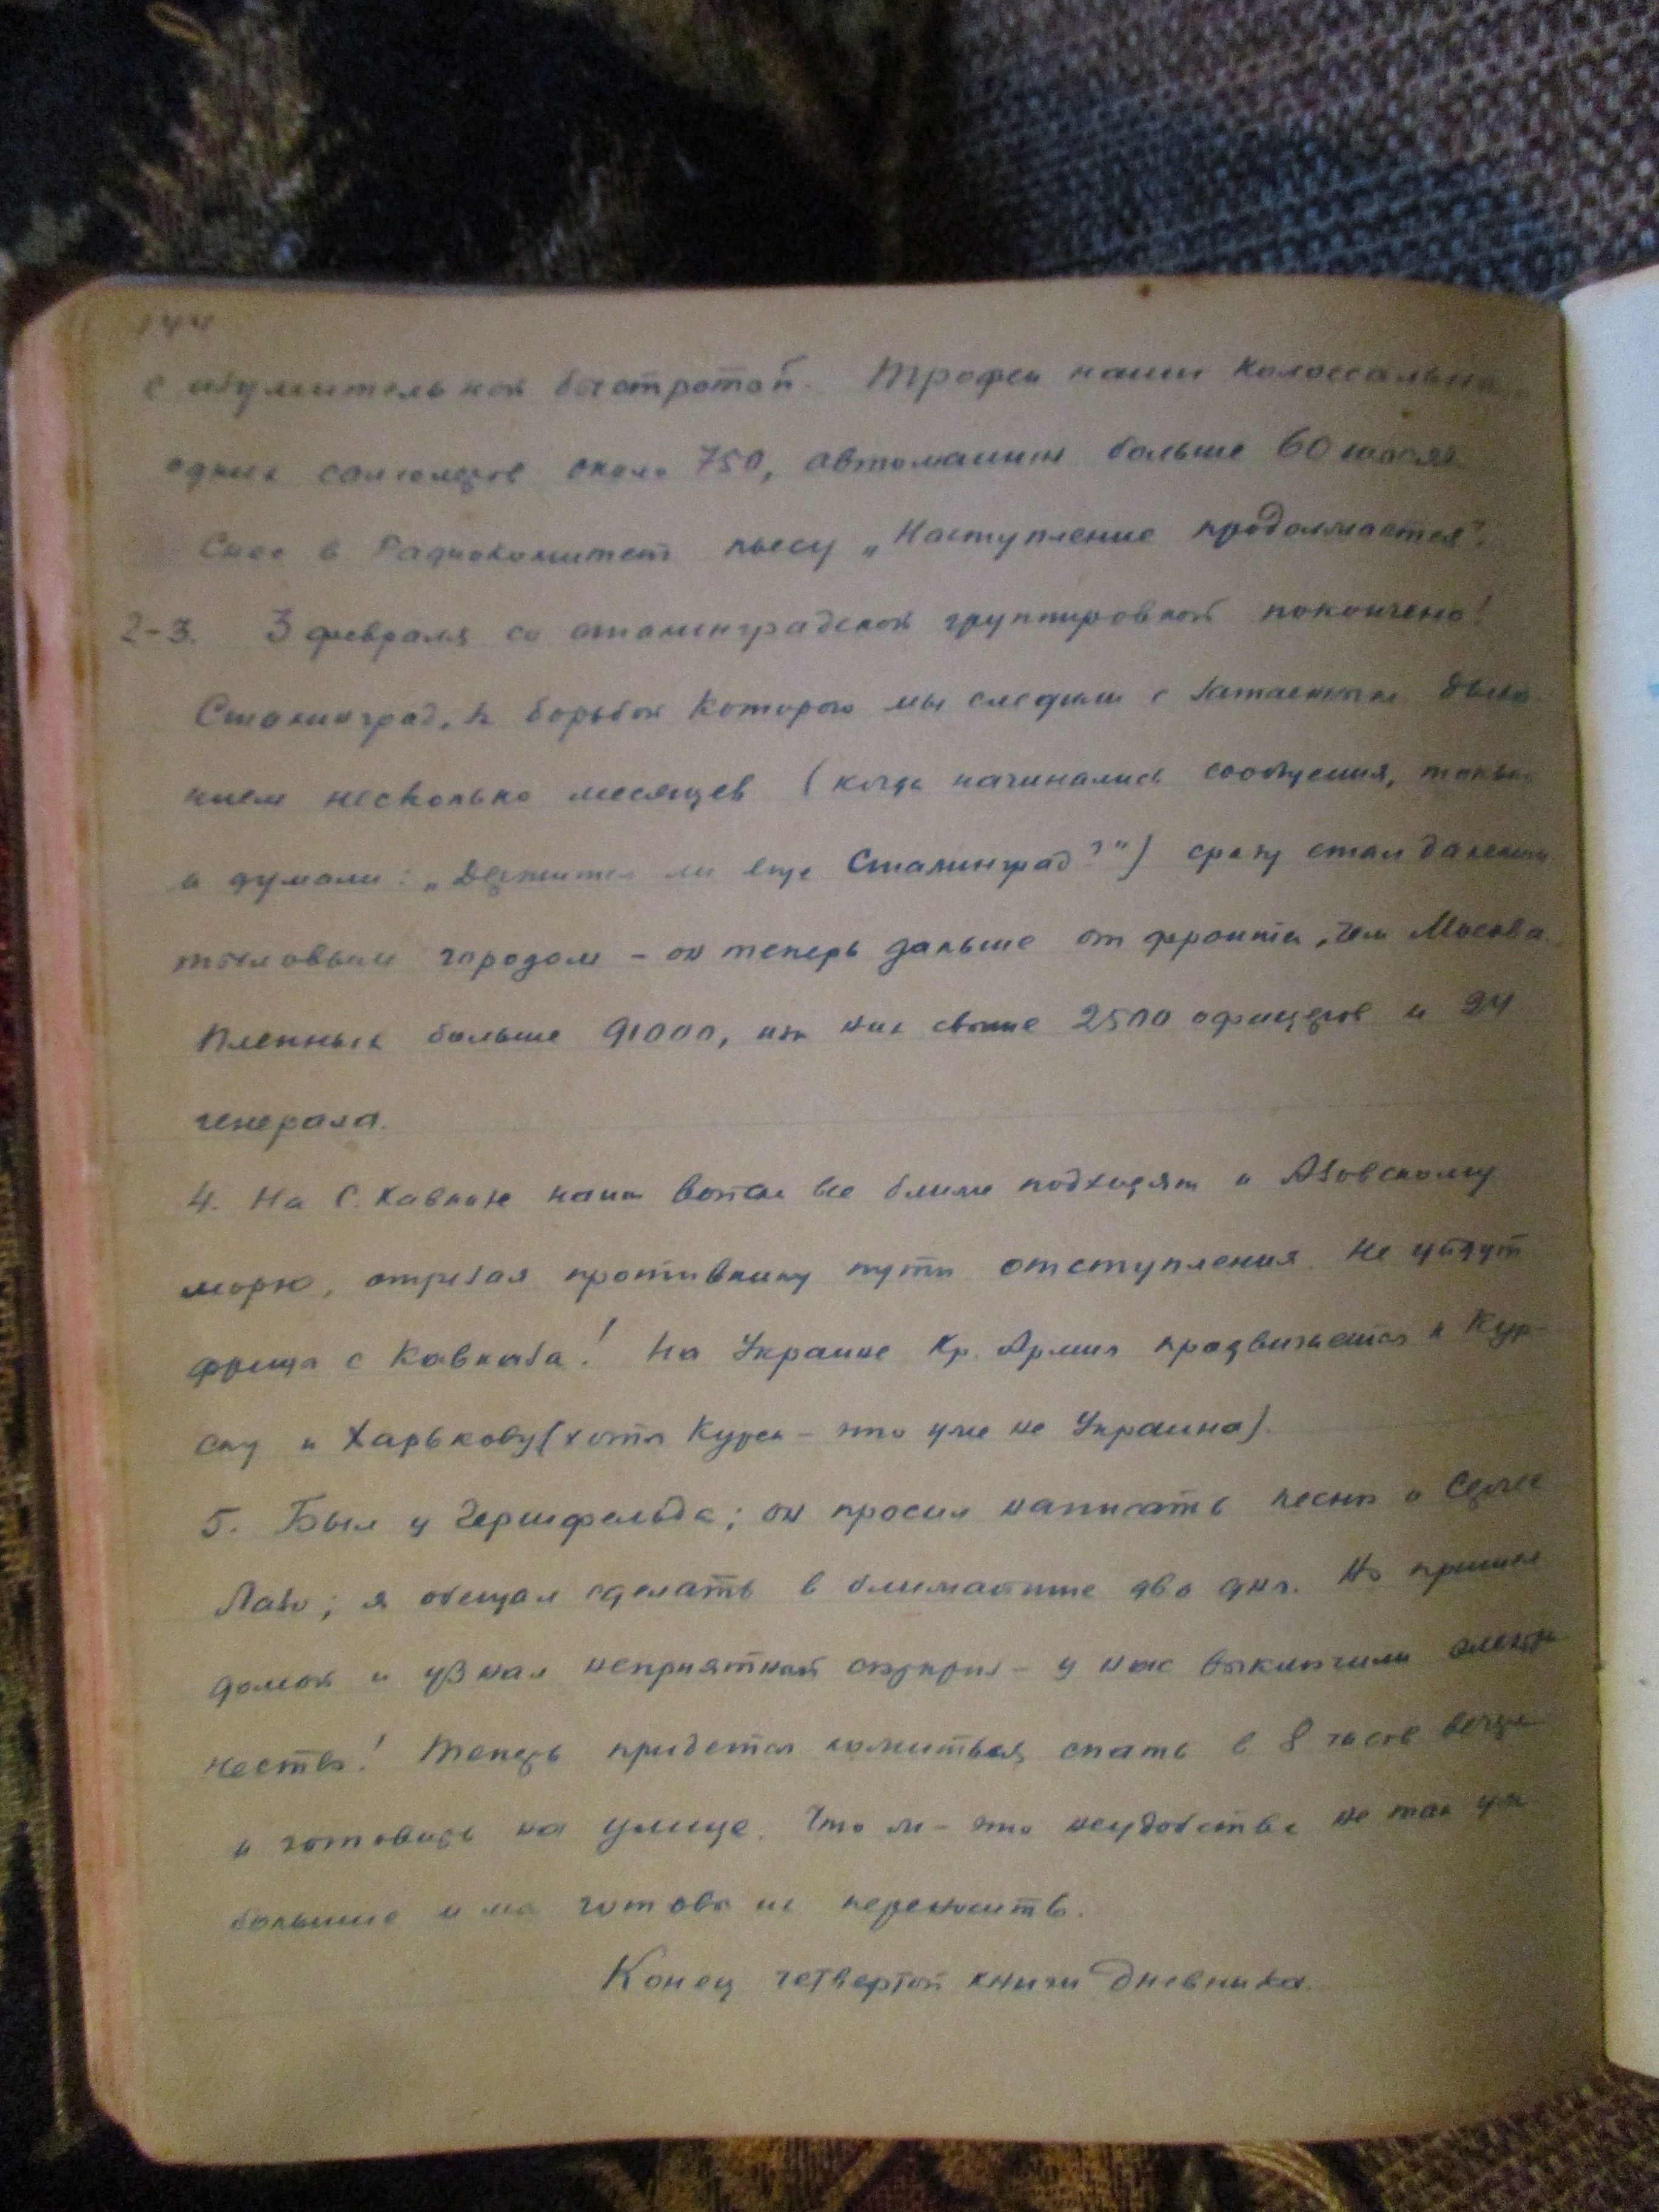 144
с изумительной быстротой. Трофеи наши колоссальны
одних самолетов около 750, автомашин больше 60 тысяч
Снес в Радиокомитет пьесу „Наступление продолжается".
2-3. 3 февраля со сталинградской группировкой покончено!
Сталинград, к борьбой которого мы следили с затаенным дыха
нием несколько месяцев (когда начинались сообщения, только
и думали: „Держится ли еще Сталинград?") сразу стал далеким
тыловым городом – он теперь дальше от фронта, чем Москва
Пленных больше 91000, из них свыше 2500 офицеров и 24
генерала.
4. На С. Кавказе наши все ближе подходят к Азовскому
морю, отрезая противнику пути отступления. Не уйдут
фрицы с Кавказа! На Украине Кр. Армия продвигается к Кур-
ску и Харькову (хотя Курск – это уже не Украина).
5. Был у Гершфельда; он просил написать песню о Серге
Лазо; я обещал сделать в ближайшие два дня. Но пришел
домой и узнал неприятный сюрприз – у нас выключили электри
чество! Теперь придется ложиться спать в 8 часов вечера
и готовить на улице. Что ж – эти неудобства не так уж
большие и мы готовы их переносить.
Конец четвертой книги дневника.